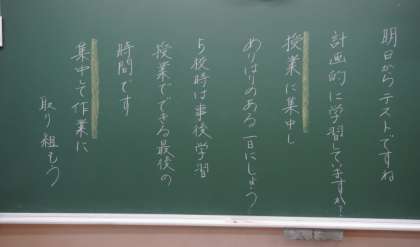 明日からテストですね
計画的に学習していますか?
授業に集中し
めりはりのある一日にしよう
5校時は事後学習
授業でできる最後の
時間です
集中して作業に
取り組もう